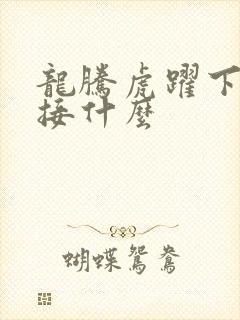 龍騰虎躍下
接什麼
蝴蝶鴛鴦